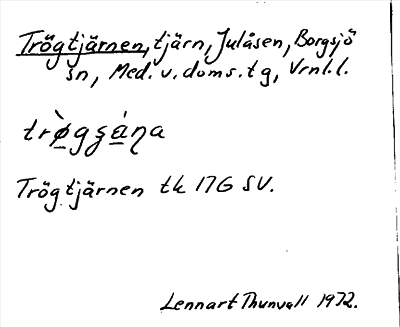 Trögtjärnen, tjärn, Julåsen, Borgsjö
sn, Med. v. doms. tg, Vrnl. l.
Trögtjärnen tk 17G SV.
Lennart Thunvall 1972.